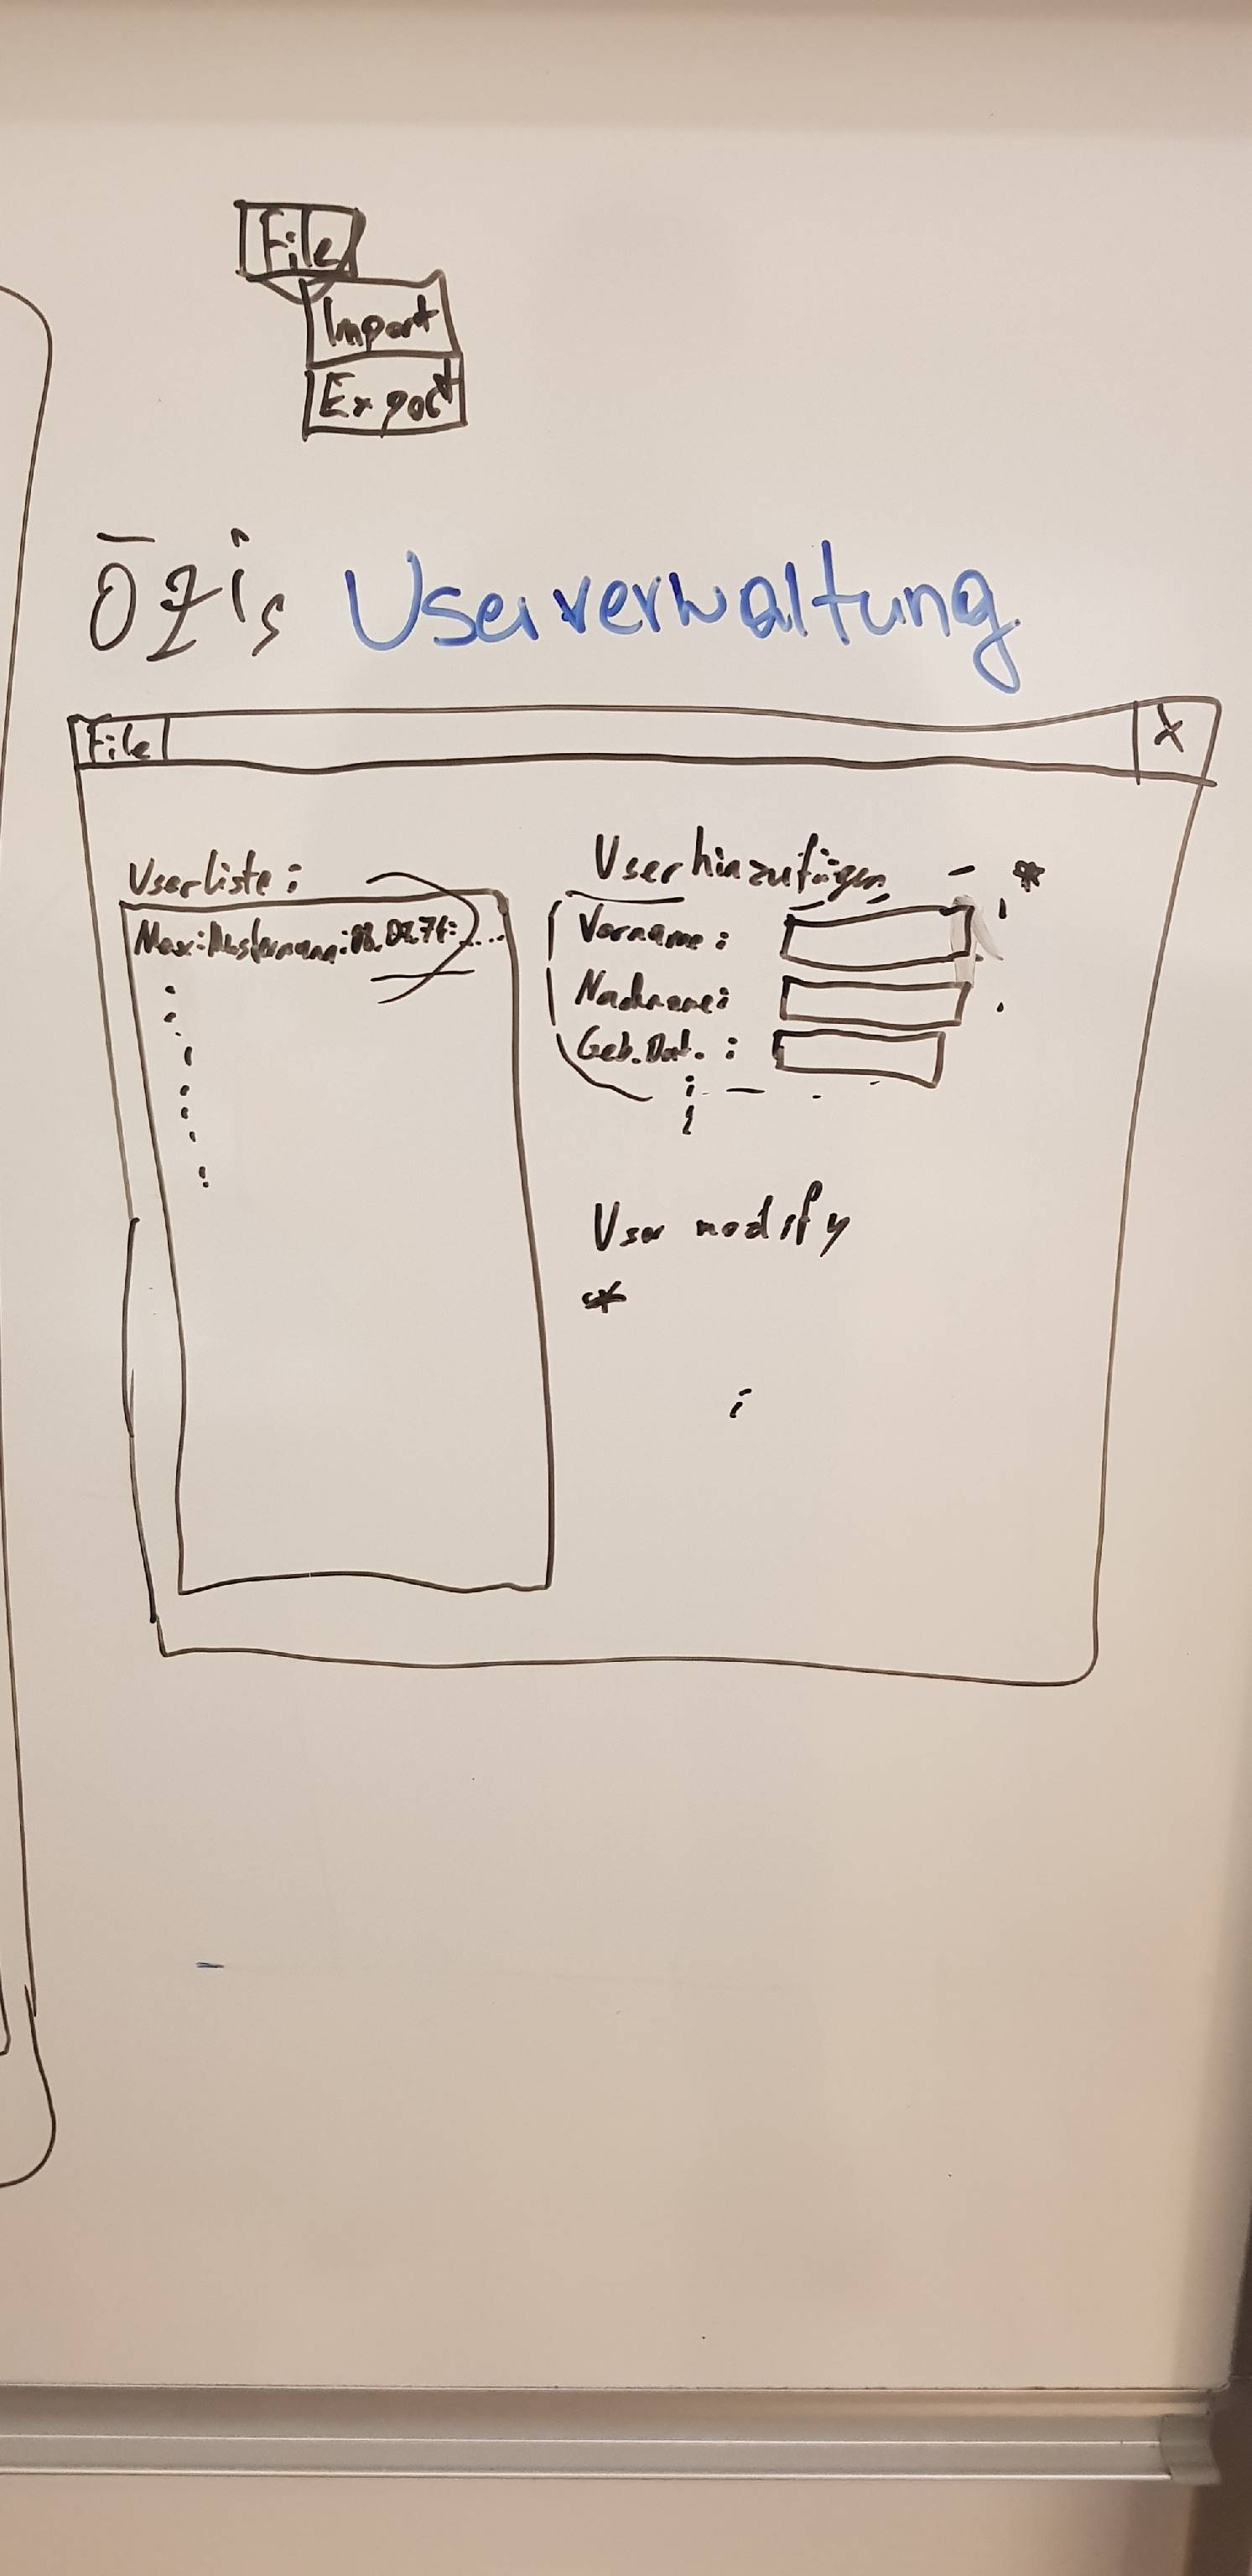 File
Import
Export
Özis Userverwaltung
File X
Userliste:
Max:Mustermann:08.02.76:....
User hinzufügen *
Vorname:
Nachname:
Geb.Dat.:
User modify
*